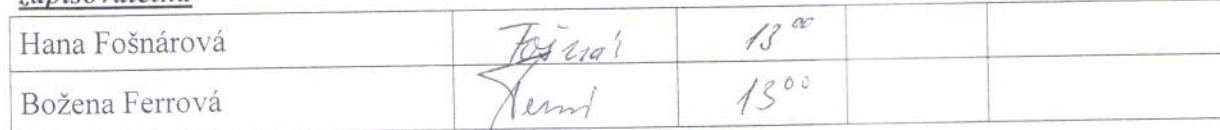 Hana Fošnárová 13 00
Božena Ferrová 13 00